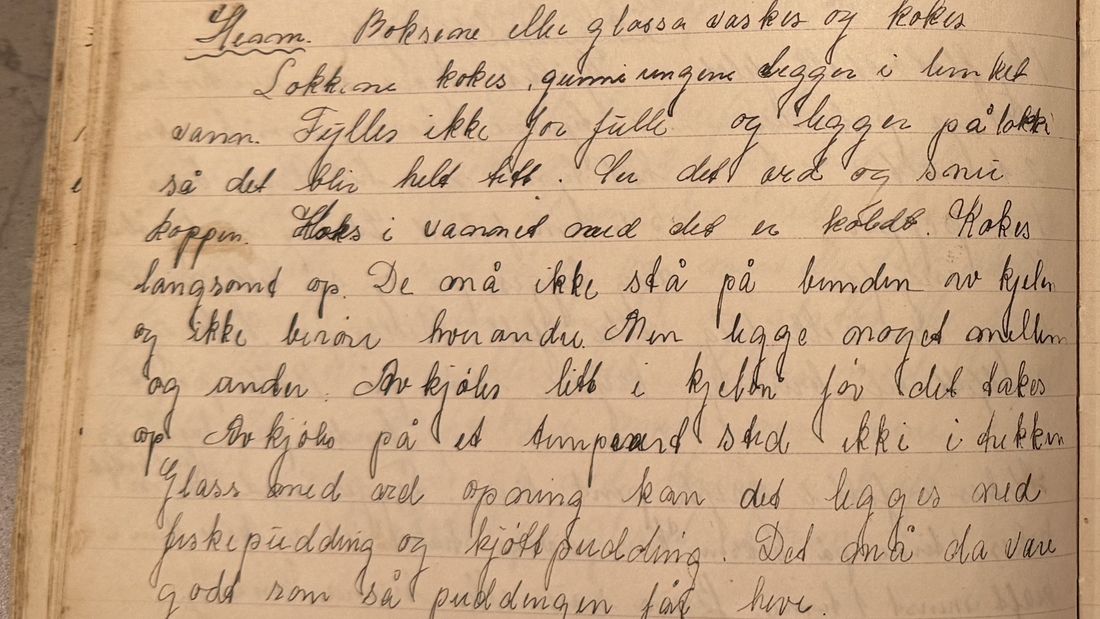 Boksene eller glassa vaskes og kokes
Lokkene kokes, gummi ungene legger i lunket
vann. Fylles ikke for fulle og legger på lokke
så det blir helt tett. Ser det ord og snu
koppen. Koks i vannet med det er koldt. Kokes
langsomt op. De må ikke stå på bunden av kjelen
og ikke beröre hverandre. Men legge noget mellem
og under. Avkjöles litt i kjelen för det takes
op Avkjöles på et temperert sted ikke i trekken
Glass med vid opning kan det legges ned
fiskepudding og kjöttpudding. Det må da være
godt rom så puddingen får heve.